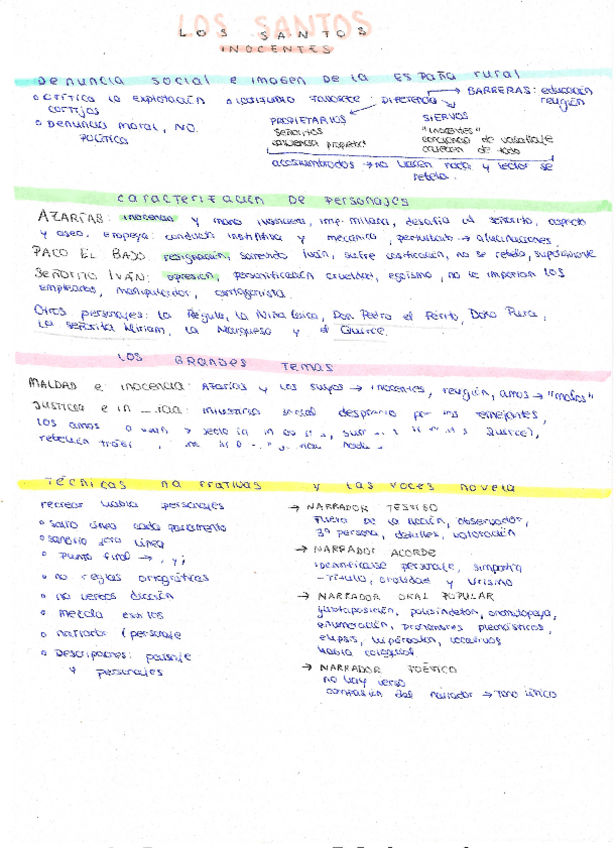 LOS SANTOS
INOCENTES
Denuncia social e imagen de la España rural
Crítica la explotación
cortijos
Denuncia moral, NO
política
latifundio favorece
DIFERENCIA
BARRERAS: educación
religión
PROPIETARIOS
señoritos
SIERVOS
"inocentes"
conciencia de vasallaje
carecen de todo
acostumbrados → no hacen nada y lector se
rebela.
caracterización de personajes
AZARÍAS: inocencia y mano, imp. milana, desafía al señorito, aspecto
y aseo. conducta instintiva y mecánica, perturbado → alucinaciones.
PACO EL BAJO: resignación, Iván, sufre cosificación, no se rebela,
SEÑORITO IVÁN: opresión, personificación crueldad, egoísmo, no le importan los
empleados, manipulador, antagonista.
Otros personajes: la Régula, la Niña Chica, Don Pedro el Périto, Doña Pura,
la señorita Miriam, la Marquesa y el Quirce.
LOS GRANDES TEMAS
MALDAD e INOCENCIA: Azarías y los suyos → inocentes, religión, amos → "malos"
JUSTICIA e: injusticia social desprecio por sus semejantes,
los amos Quirce),
rebelión
Técnicas narrativas y las voces novela
recrear habla personajes
salto línea cada parlamento
sangría línea
punto final → , y ;
no reglas ortográficas
no verbos dicción
mezcla estilos
narrador / personaje
Descripciones: paisaje
y personajes
→ NARRADOR TESTIGO
fuera de la acción, observador,
3ª persona, detalles, valoración
→ NARRADOR ACORDE
identificarse personaje, simpatía
- título, oralidad y lirismo
→ NARRADOR ORAL POPULAR
yuxtaposición, polisíndeton, onomatopeya,
enumeración, pronombres pleonásticos,
elipsis, hipérbaton, vocativos
habla coloquial
→ NARRADOR POÉTICO
no hay verso
confusión del narrador → tono lírico